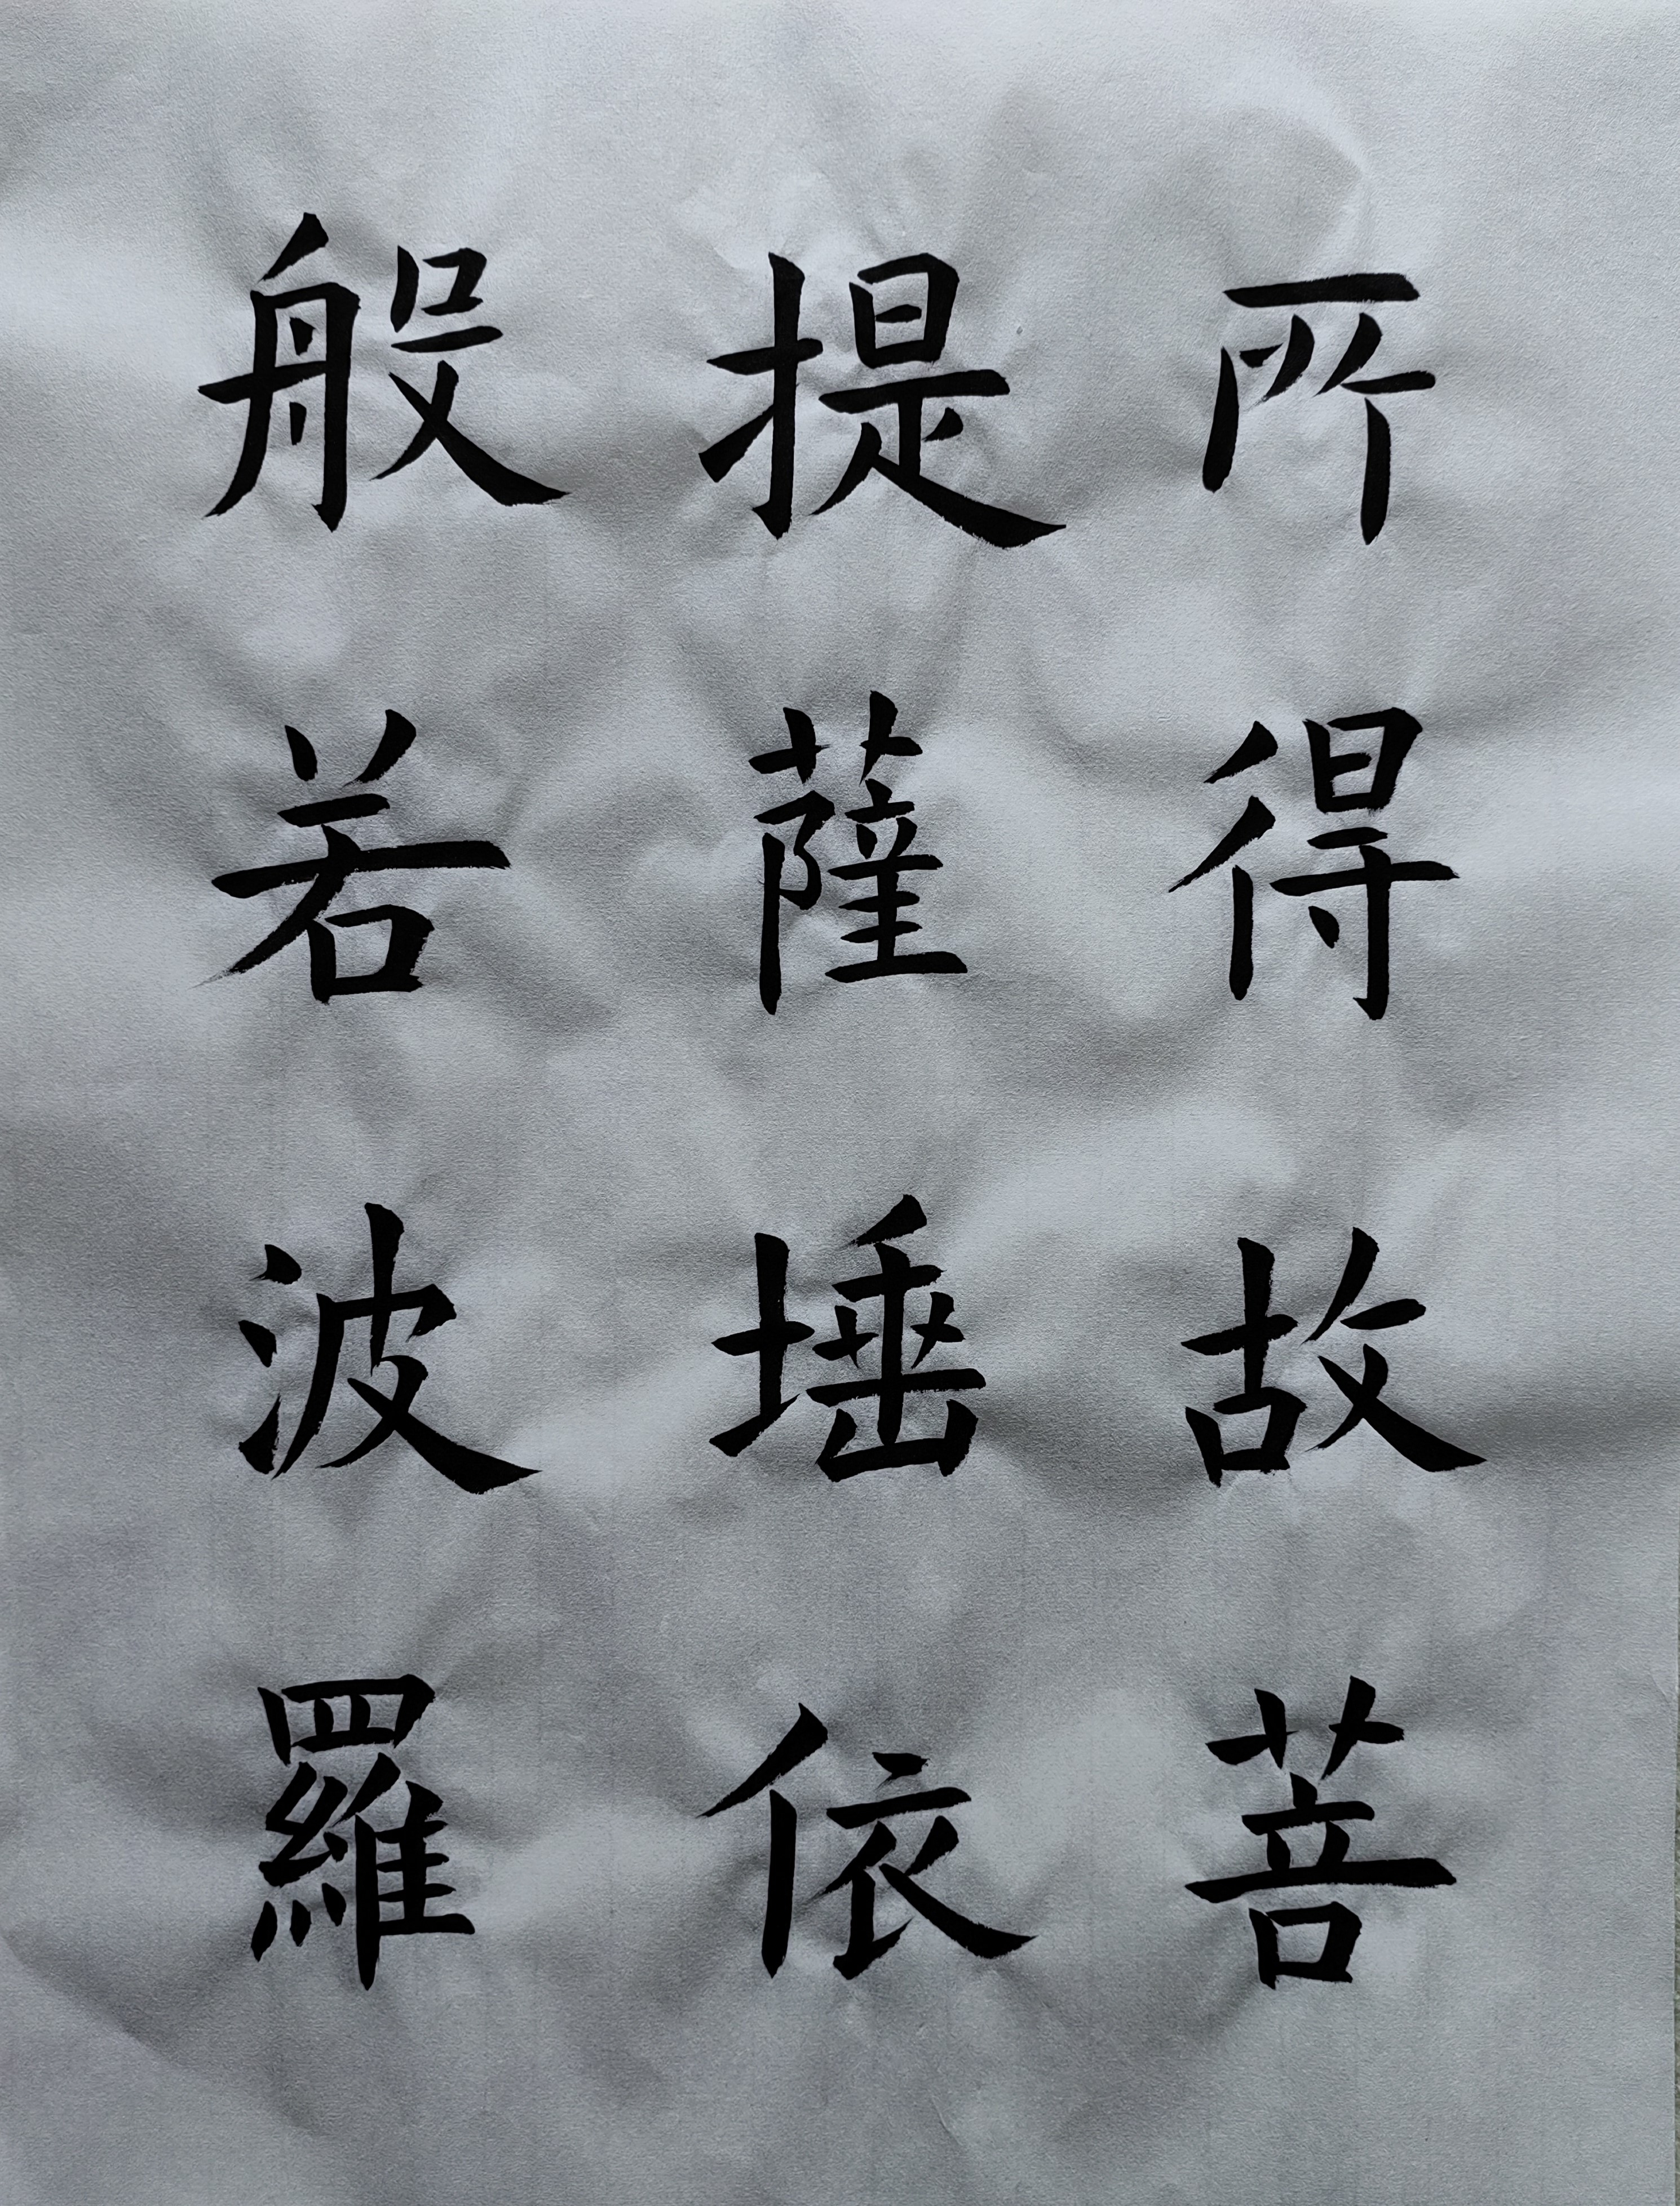 所得故菩
提薩埵依
般若波羅